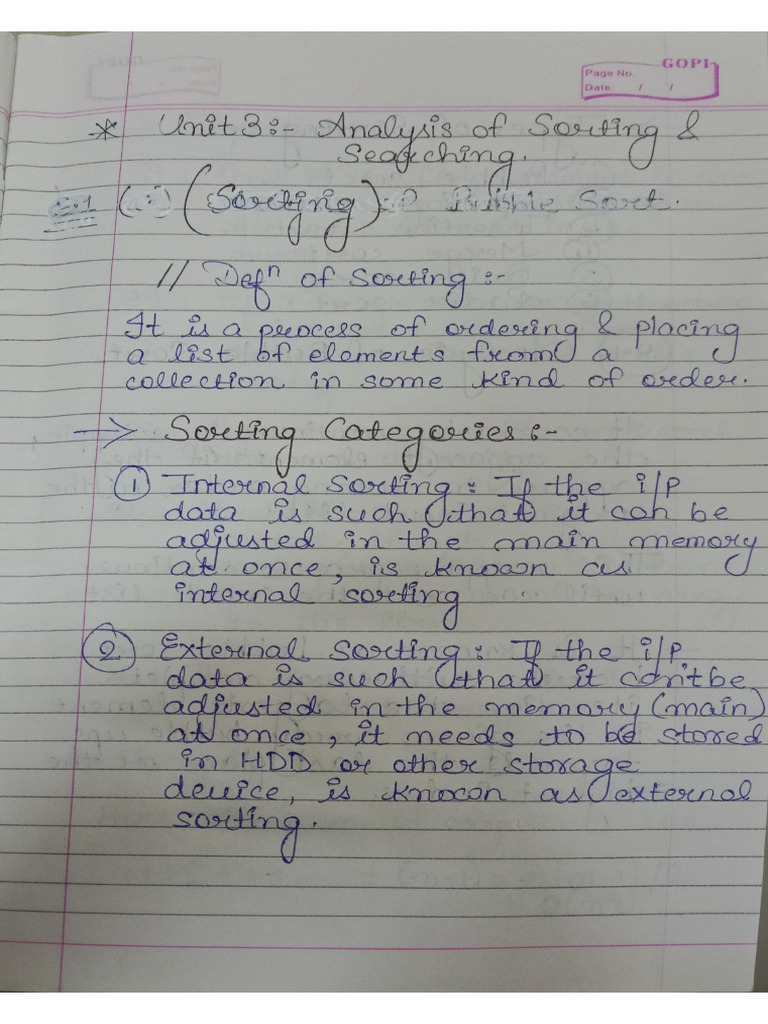 GOPI
Page No.
Date: / /
* Unit 3:- Analysis of Sorting &
Searching.
(Sorting) Bubble Sort.
// Defⁿ of Sorting :-
It is a process of ordering & placing
a list of elements from a
collection in some kind of order.
→ Sorting Categories :-
① Internal Sorting : If the i/p
data is such that it can be
adjusted in the main memory
at once, is known as
internal sorting
② External Sorting : If the i/p
data is such that it can't be
adjusted in the memory (main)
at once, it needs to be stored
in HDD or other storage
device, is known as external
sorting.